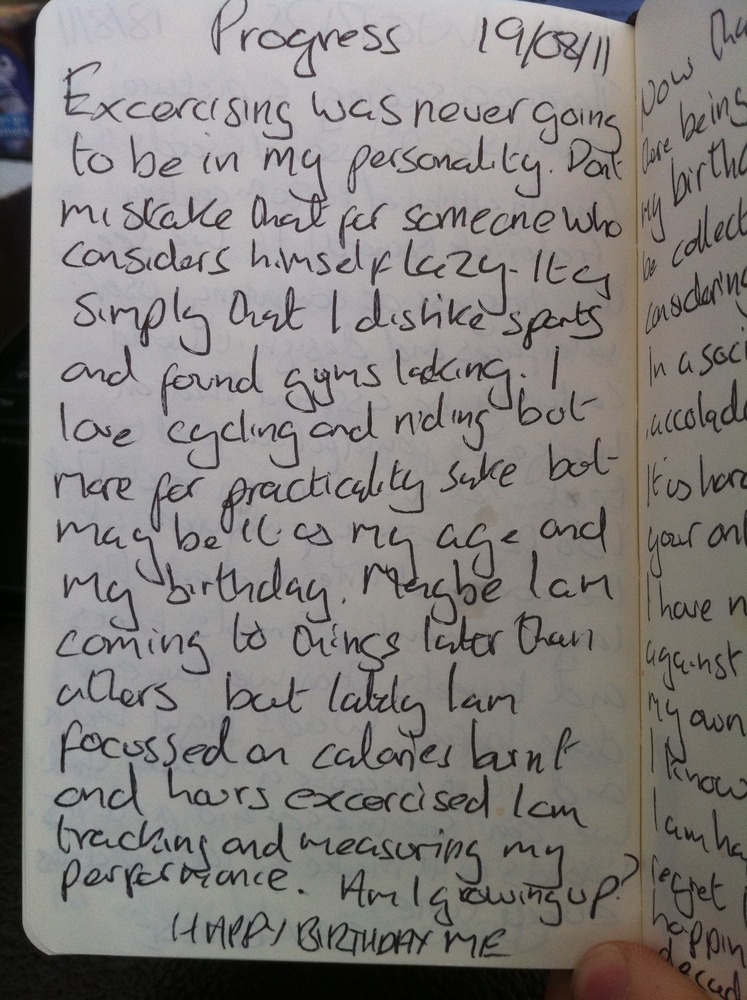 Progress 19/08/11
Excercising was never going
to be in my personality. Dont
mistake that for someone who
considers himself lazy. It is
simply that I dislike sports
and found gyms lacking. I
love cycling and riding but
more for practicality sake but
may be it is my age and
my birthday. Maybe I am
coming to things later than
others but lately I am
focussed on calories burnt
and hours excercised I am
tracking and measuring my
performance. Am I growing up?
HAPPY BIRTHDAY ME
Now
being
my birth
be collect
considering
In a soci
accolad
It is hard
your onl
I have n
against
my own
I know
I am ha
regret I
happin
decad